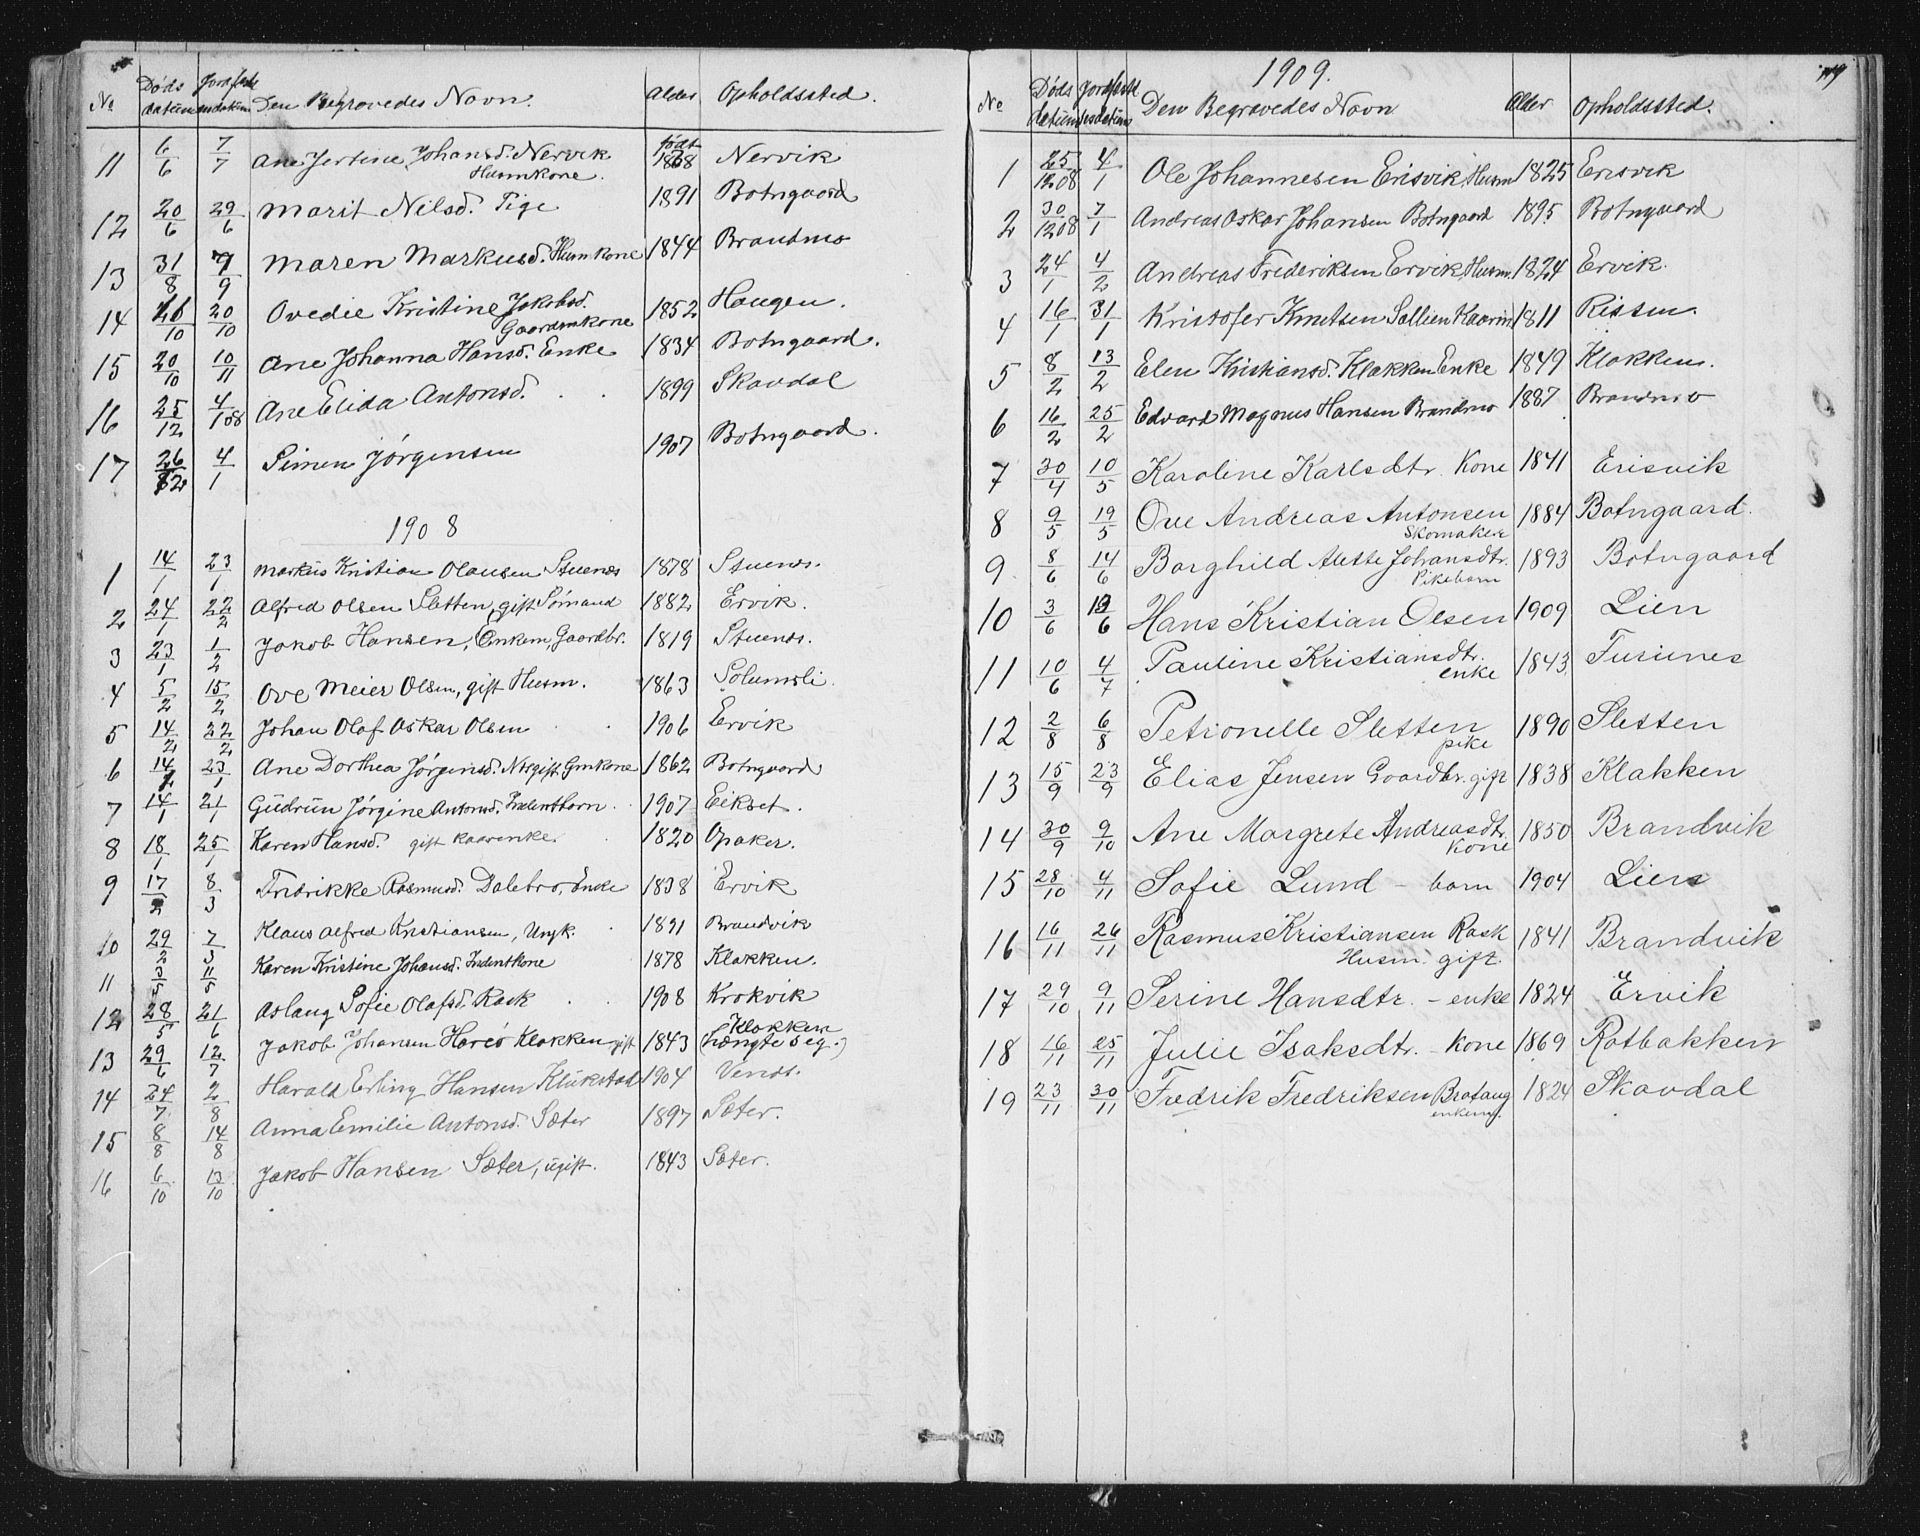 No Døds datum Jordfestelsesdatum Den Begravedes Navn. Alder Opholdssted.
11 6/6 7/7 Ane Jertine Johansd. Nervik født 1868 Nervik
Husmkone.
12 20/6 29/6 Marit Nilsd. Pige 1891 Botngaard
13 31/8 7/9 Maren Markusd. Husmkone 1844 Brandmo
14 26/10 20/10 Ovedie Kristine Jakobsd. 1852 Haugen.
Gaardmkone
15 20/10 10/11 Ane Johanna Hansd. Enke 1834 Botngaard.
16 25/12 4/1 08 Ane Elida Antonsd. 1899 Skavdal
17 26/12 4/1 Simen Jørgensen 1907 Botngaard.
1908
1 14/1 23/1 Markus Kristian Olausen Stuenes 1878 Stuenes.
2 24/1 22/2 Alfred Olsen Sletten, gift Sømand 1882 Ervik.
3 23/1 1/2 Jakob Hansen, Enkem, Gaardbr. 1819 Stuenes.
4 5/2 15/2 Ove Meier Olsen, gift Husm. 1863 Solumsli.
5 14/2 22/2 Johan Olaf Oskar Olsen 1906 Ervik
6 14/1 23/1 Ane Dorthea Jørgensd. gift Gmkone 1862 Botngaard
7 14/1 21/1 Gudrun Jørgine Antonsd. Inderstbarn 1907 Eikset.
8 18/1 25/1 Karen Hansd. gift kaarenke 1820 Opaker.
9 17/2 8/3 Fredrikke Rasmusd. Dalebro, Enke 1838 Ervik
10 29/2 7/3 Klaus Alfred Kristiansen, Ungk. 1891 Brandvik
11 3/5 11/5 Karen Kristine Johansd. Inderstkone 1878 Klakken.
12 28/5 21/6 Aslaug Sofie Olafsd. Rask 1908 Krokvik
13 29/6 12/7 Jakob Johansen Klakken gift 1843 Klakken
(hængte seg.)
14 24/7 2/8 Harald Erling Hansen Klukstad 1904 Venes.
15 8/8 14/8 Anna Emilie Antonsd. Sæter 1897 Sæter.
16 6/10 13/10 Jakob Hansen Sæter, ugift. 1843 Sæter.
1909.
No Døds datum Jordfestelsesdatum Den Begravedes Navn Alder Opholdssted.
1 25/12 08 4/1 Ole Johannesen Erisvik, Husm 1825 Erisvik
2 30/12 08 7/1 Andreas Oskar Johansen Botngaard 1895 Botngaard
3 24/1 4/2 Andreas Frederiksen Ervik, Husm. 1824 Ervik.
4 16/1 31/1 Kristofer Knutsen Sollien Kaarm 1811 Rissen.
5 8/2 13/2 Elen Kristiansd. Klakken Enke 1849 Klakken.
6 16/2 25/2 Edvard Magnus Hansen Brandmo 1887 Brandmo
7 30/4 10/5 Karoline Karlsdtr. Kone 1841 Erisvik
8 9/5 19/5 Ove Andreas Antonsen 1884 Botngaard.
Skomaker
9 8/6 14/6 Borghild Alette Johansdtr. 1893 Botngaard
Pikebarn
10 3/6 13/6 Hans Kristian Olsen 1909 Lien
11 10/6 4/7 Pauline Kristiansdtr. 1843 Furunes
enke
12 2/8 6/8 Petronelle Sletten 1890 Sletten
pike
13 15/9 23/9 Elias Jensen Gaardbr. gift 1838 Klakken
14 30/9 9/10 Ane Margrete Andreasdtr. 1850 Brandvik
Kone
15 28/10 4/11 Sofie Lund - barn 1904 Lien
16 16/11 26/11 Rasmus Kristiansen Rask 1841 Brandvik
Husm. gift.
17 29/10 9/11 Serine Hansdtr. - enke 1824 Ervik
18 16/11 25/11 Julie Isaksdtr. - Kone 1869 Rotbakken
19 23/11 30/11 Fredrik Fredriksen 1824 Skavdal
enkem.